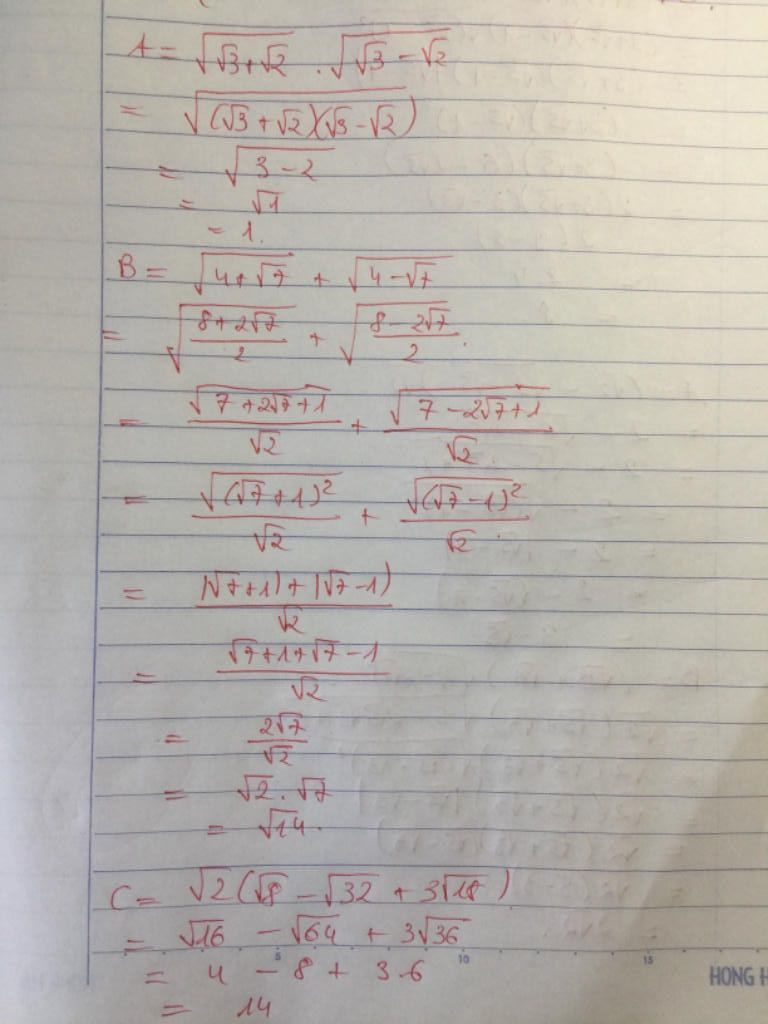 A = √(√3+√2) . √(√3-√2)
= √((√3+√2)(√3-√2))
= √(3-2)
= √1
= 1.
B = √(4+√7) + √(4-√7)
= √((8+2√7)/2) + √((8-2√7)/2).
= √(7+2√7+1)/√2 + √(7-2√7+1)/√2.
= √((√7+1)²)/√2 + √((√7-1)²)/√2.
= (|√7+1|+|√7-1|)/√2
= (√7+1+√7-1)/√2
= 2√7/√2
= √2.√7
= √14.
C = √2(√8 - √32 + 3√18)
= √16 - √64 + 3√36
= 4 - 8 + 3.6
= 14
5 10 15 HONG H